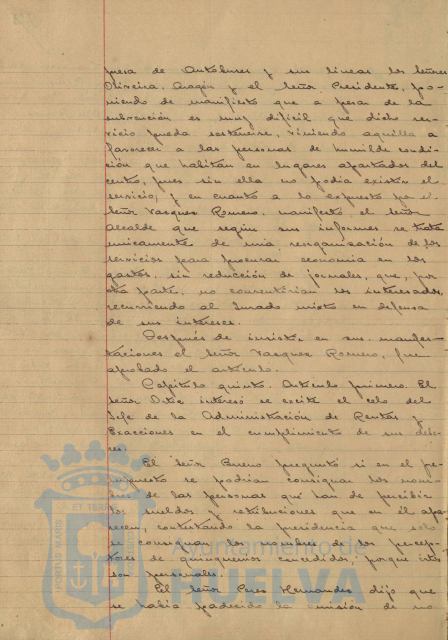 presa de Autobuses y sus lineas los señores
Oliveira, Aragón y el señor Presidente, po-
niendo de manifiesto que a pesar de la
subvención es muy dificil que dicho ser-
vicio pueda sostenerse, viniendo aquella a
favorecer a las personas de humilde condi-
ción que habitan en lugares apartados del
centro, pues sin ella no podia existir el
servicio, y en cuanto a lo expuesto por el
señor Vazquez Romero, manifestó el señor
Alcalde que según sus informes se trata
unicamente de una reorganización de los
servicios para procurar economia en los
gastos, sin reducción de jornales, que, por
otra parte, no consentirian los interesados,
recurriendo al Jurado mixto en defensa
de sus intereses.
Después de insistir en sus manifes-
taciones el señor Vazquez Romero, fue
aprobado el articulo.
Capitulo quinto. Articulo primero. El
señor Ortiz interesó se excite el celo del
Jefe de la Administración de Rentas y
Exacciones en el cumplimiento de sus debe-
res.
El señor Bueno preguntó si en el pre-
supuesto se podrian consignar los nom-
bres de las personas que han de percibir
los sueldos y retribuciones que en él apa-
recen, contestando la presidencia que solo
se consignan los nombres de los percep-
tores de quinquenios concedidos, porque estos
son personales.
El señor Perez Hernandez dijo que
se habia padecido la omisión de no
Ayuntamiento de
HUELVA